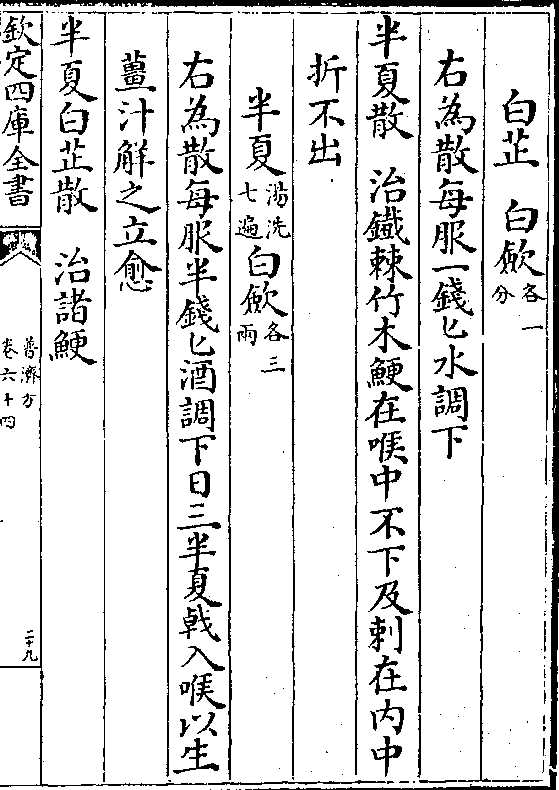 白芷　白歛各一分
右為散每服一錢匕水調下
半夏散　治鐵棘竹木鯁在喉中不下及刺在内中
折不出
半夏湯洗七遍白歛各三兩
右為散每服半錢匕酒調下日三半夏戟入喉以生
薑汁解之立愈
半夏白芷散　治諸鯁
欽定四庫全書
普濟方
卷六十四
二十九